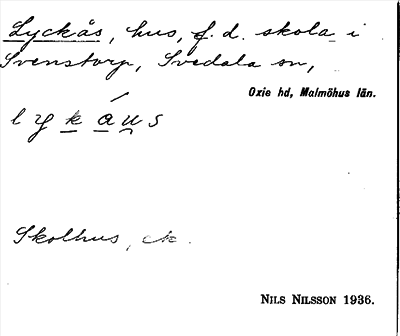 Lyckås, hus, f. d. skola i
Svenstorp, Svedala sn,
Oxie hd, Malmöhus län.
Skolhus, ek.
NILS NILSSON 1936.